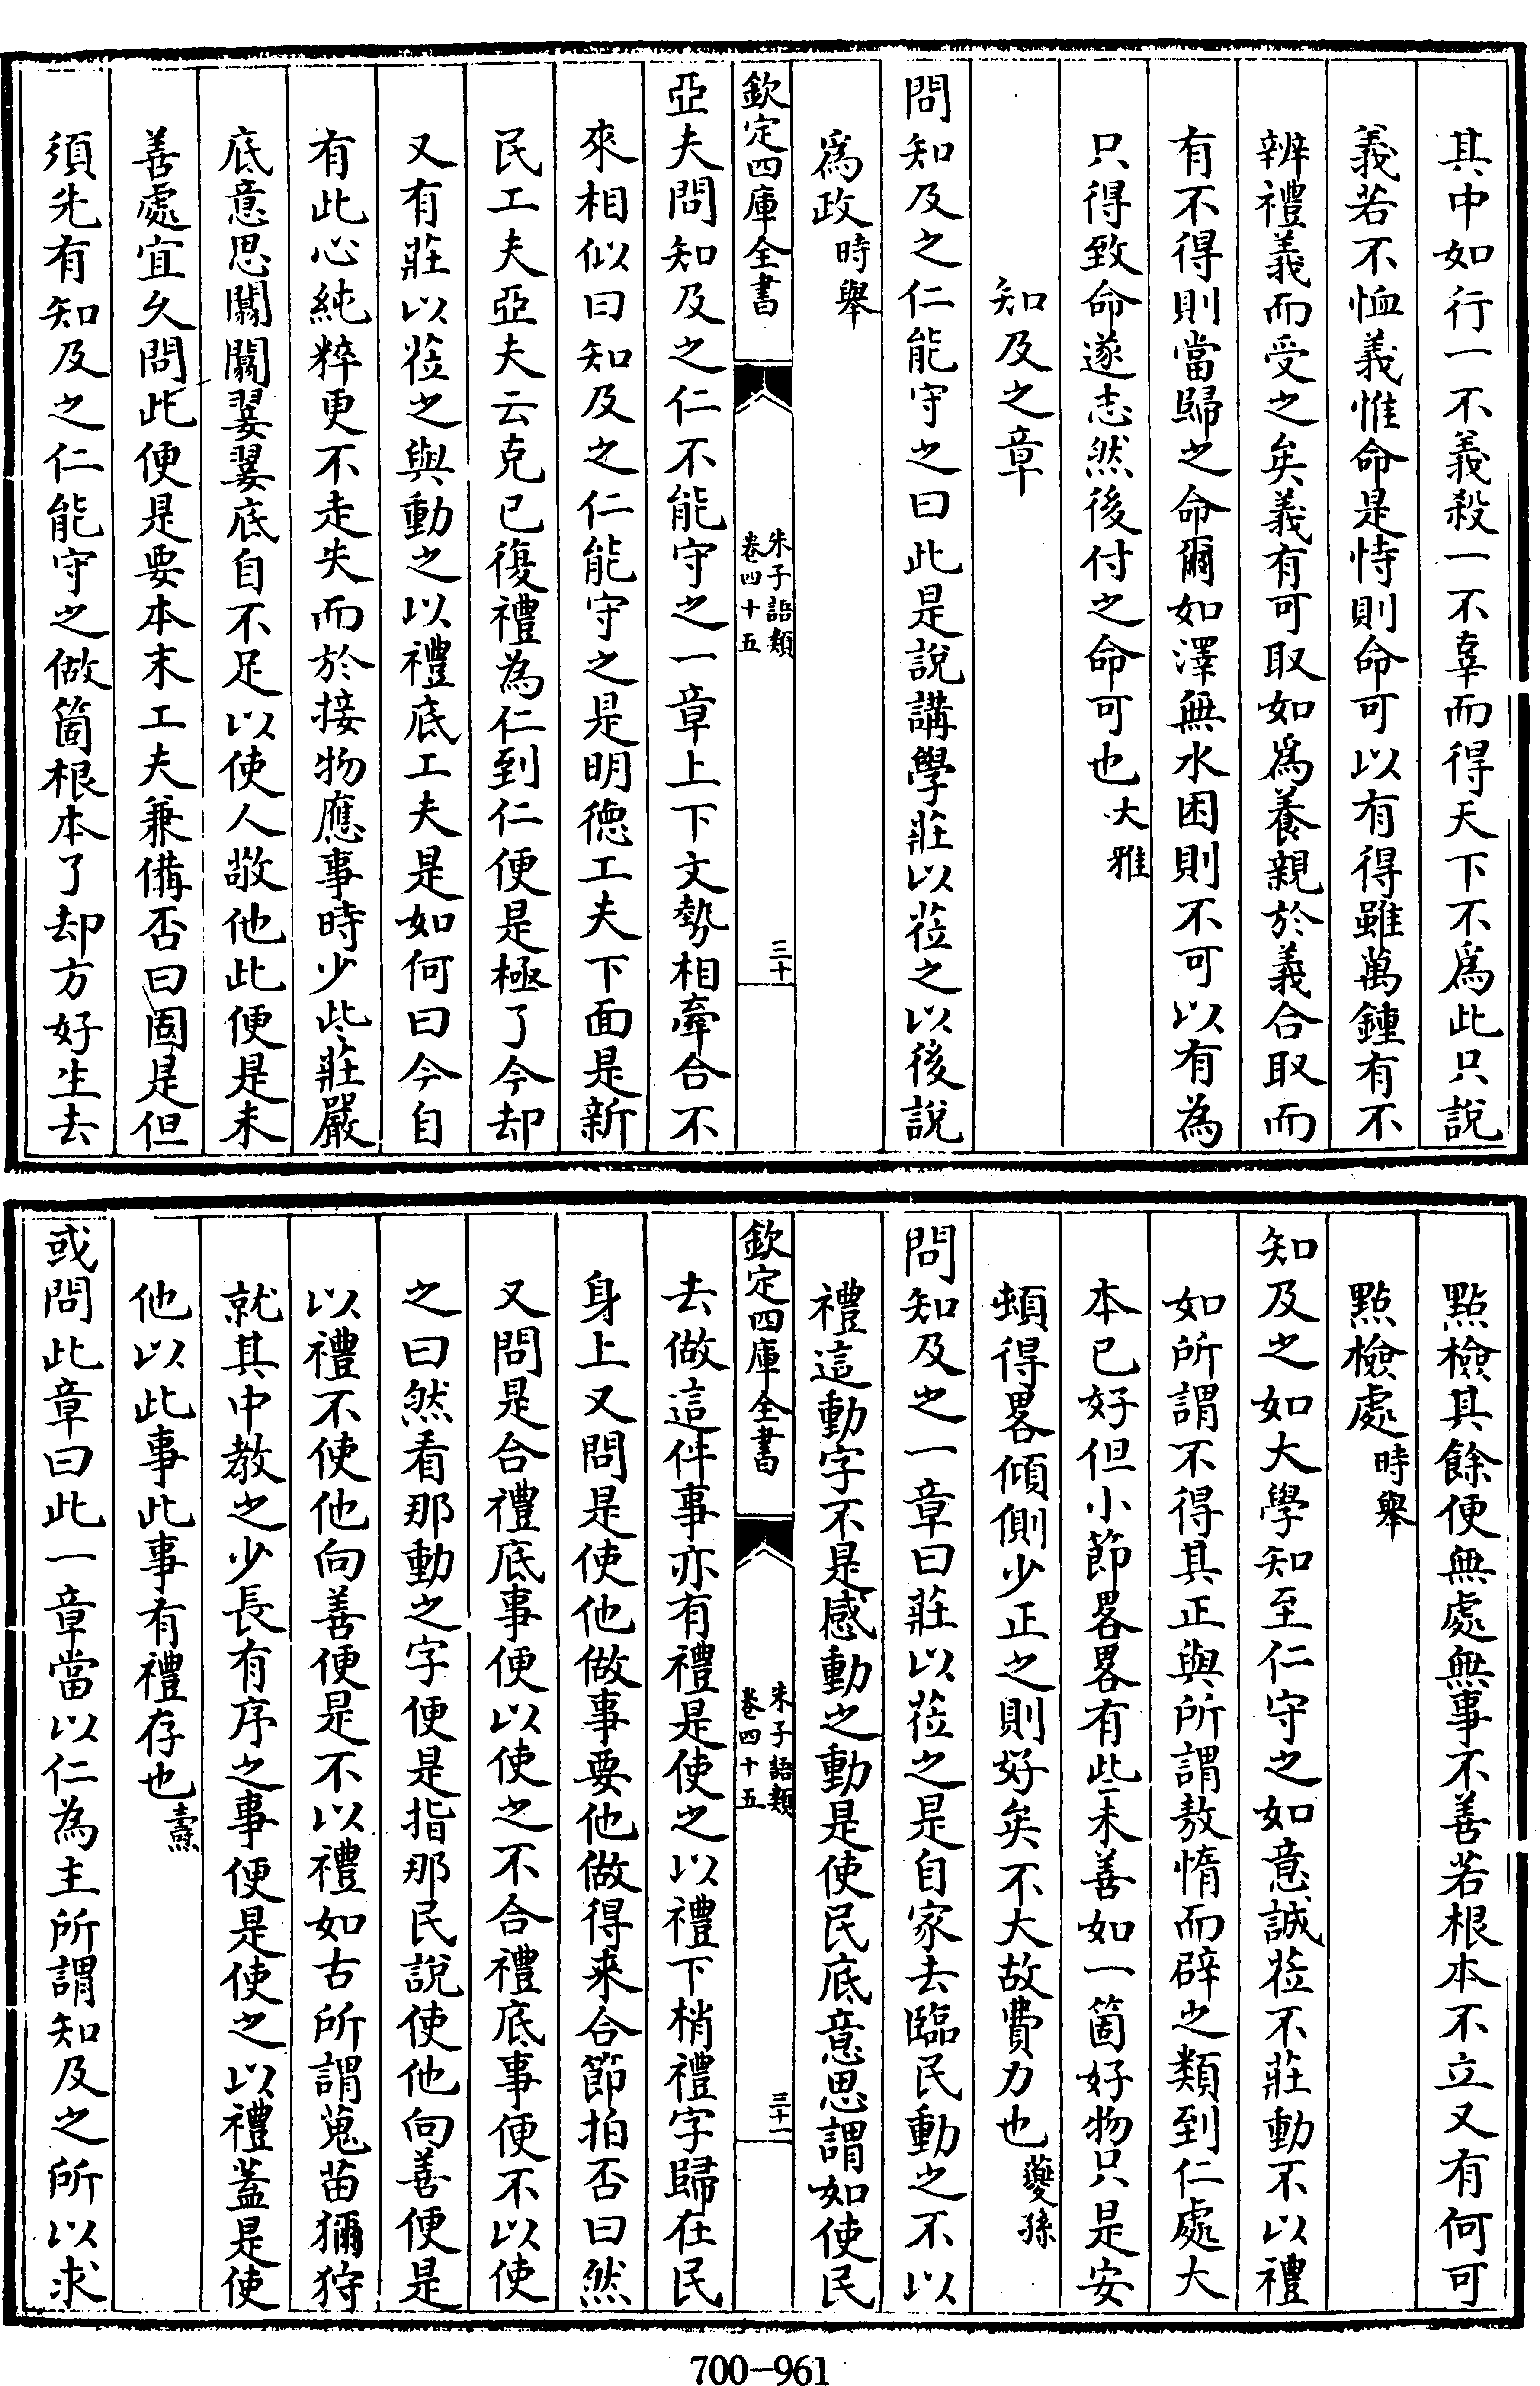 其中如行一不義殺一不辜而得天下不爲此只說
義若不恤義惟命是恃則命可以有得雖萬鍾有不
辨禮義而受之矣義有可取如爲養親於義合取而
有不得則當歸之命爾如澤無水困則不可以有為
只得致命遂志然後付之命可也大雅
知及之章
問知及之仁能守之曰此是說講學莊以莅之以後說
爲政時舉
欽定四庫全書
朱子語類
卷四十五
三十
亞夫問知及之仁不能守之一章上下文勢相牽合不
來相似曰知及之仁能守之是明德工夫下面是新
民工夫亞夫云克已復禮為仁到仁便是極了今却
又有莊以莅之與動之以禮底工夫是如何曰今自
有此心純粹更不走失而於接物應事時少些莊嚴
底意思闒闒翣翣底自不足以使人敬他此便是未
善處宜久問此便是要本末工夫兼備否曰固是但
須先有知及之仁能守之做箇根本了却方好生去
點檢其餘便無處無事不善若根本不立又有何可
點檢處時舉
知及之如大學知至仁守之如意誠莅不莊動不以禮
如所謂不得其正與所謂敖惰而辟之類到仁處大
本已好但小節畧畧有些未善如一箇好物只是安
頓得畧傾側少正之則好矣不大故費力也夔孫
問知及之一章曰莊以莅之是自家去臨民動之不以
禮這動字不是感動之動是使民底意思謂如使民
欽定四庫全書
朱子語類
卷四十五
三十一
去做這件事亦有禮是使之以禮下梢禮字歸在民
身上又問是使他做事要他做得来合節拍否曰然
又問是合禮底事便以使之不合禮底事便不以使
之曰然看那動之字便是指那民說使他向善便是
以禮不使他向善便是不以禮如古所謂蒐苗獮狩
就其中教之少長有序之事便是使之以禮蓋是使
他以此事此事有禮存也燾
或問此章曰此一章當以仁為主所謂知及之所以求
700-961